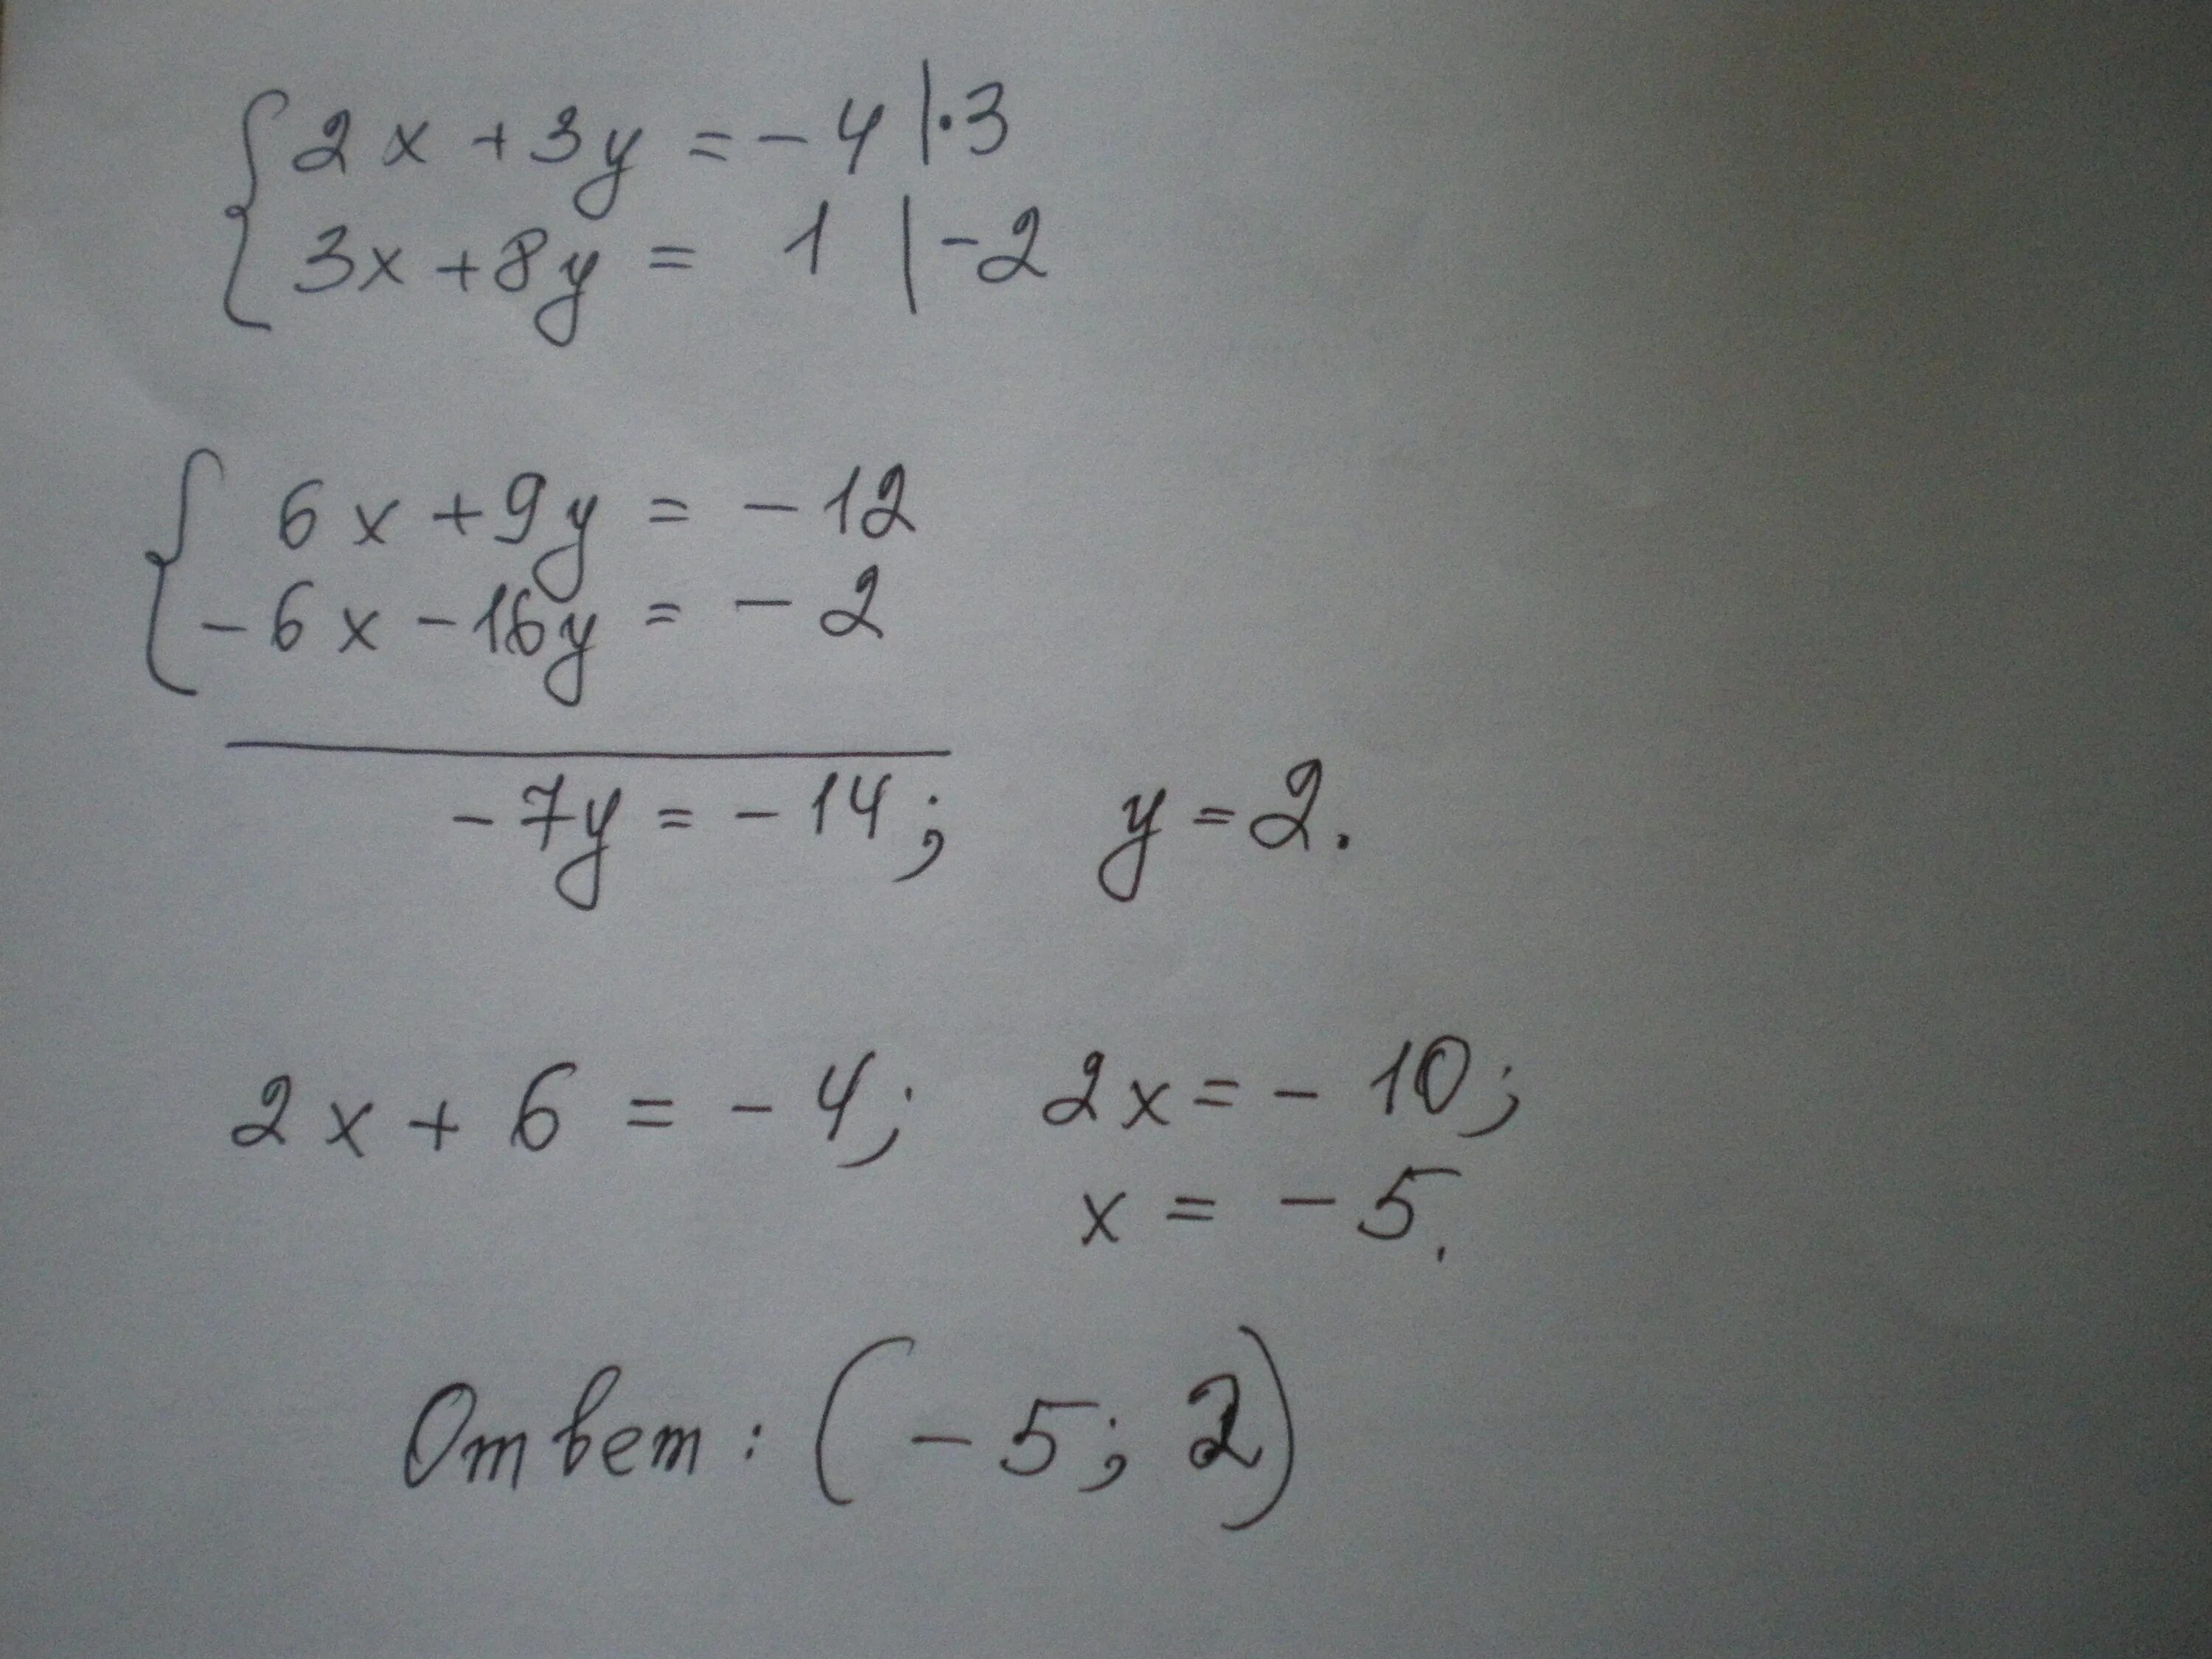 2x + 3y = - 4 | · 3
3x + 8y = 1 | - 2
6x + 9y = - 12
- 6x - 16y = - 2
- 7y = - 14; y = 2.
2x + 6 = - 4; 2x = - 10;
x = - 5.
Ответ: (- 5; 2)